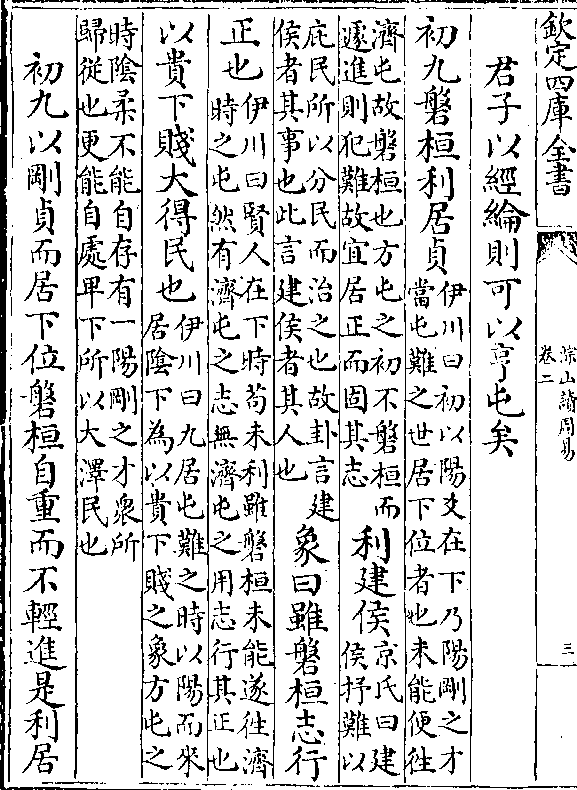 欽定四庫全書
淙山讀周易
卷二
三
君子以經綸則可以亨屯矣
初九磐桓利居貞
伊川曰初以陽爻在下乃陽剛之才
當屯難之世居下位者也未能便往
濟屯故磐桓也方屯之初不磐桓而
遽進則犯難故宜居正而固其志
利建侯
京氏曰建
侯抒難以
庇民所以分民而治之也故卦言建
侯者其事也此言建侯者其人也
象曰雖磐桓志行
正也
伊川曰賢人在下時苟未利雖磐桓未能遂往濟
時之屯然有濟屯之志無濟屯之用志行其正也
以貴下賤大得民也
伊川曰九居屯難之時以陽而來
居陰下為以貴下賤之象方屯之
時陰柔不能自存有一陽剛之才衆所
歸從也更能自處卑下所以大澤民也
初九以剛貞而居下位磐桓自重而不輕進是利居